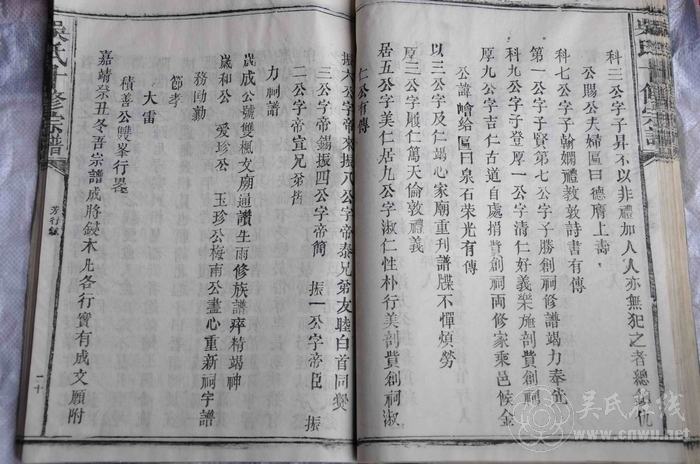 吳氏十修宗譜
科三公字子昇不以非禮加人人亦無犯之者總
公賜公夫婦區曰德膺上壽
科七公字子翰嫻禮教敦詩書有傳
第一公字子賢第七公字子勝創祠修譜竭力奉先
科九公字子登厚一公字清仁好義樂施剖貲創祠
厚九公字吉仁古道自處捐貲創祠兩修家乘邑候金
公諱嶒給區曰泉石荣光有傳
以三公字及仁竭心家廟重刋譜牒不憚煩勞
厚三公字履仁篤天倫敦禮義
居五公字美仁居九公字淑仁性朴行美剖貲創祠淑
仁公有傳
振六公字帝來振八公字帝泰兄弟友睦白首同爨
三公字帝錫振四公字帝簡 振一公字帝臣 振
二公字帝宜兄弟皆
力祠譜
崑成公號雙楓文廟通讚生兩修族譜瘁精竭神
崴和公 愛珍公 玉珍公梅南公盡心重新祠宇譜
務勤勤
節孝
大雷
積善公雙峯行畧
嘉靖癸丑冬吾宗譜成將鋟木凢各行實有成文願附
吳氏十修宗譜
芳行錄
二十
吴氏在线
www.cnwu.net